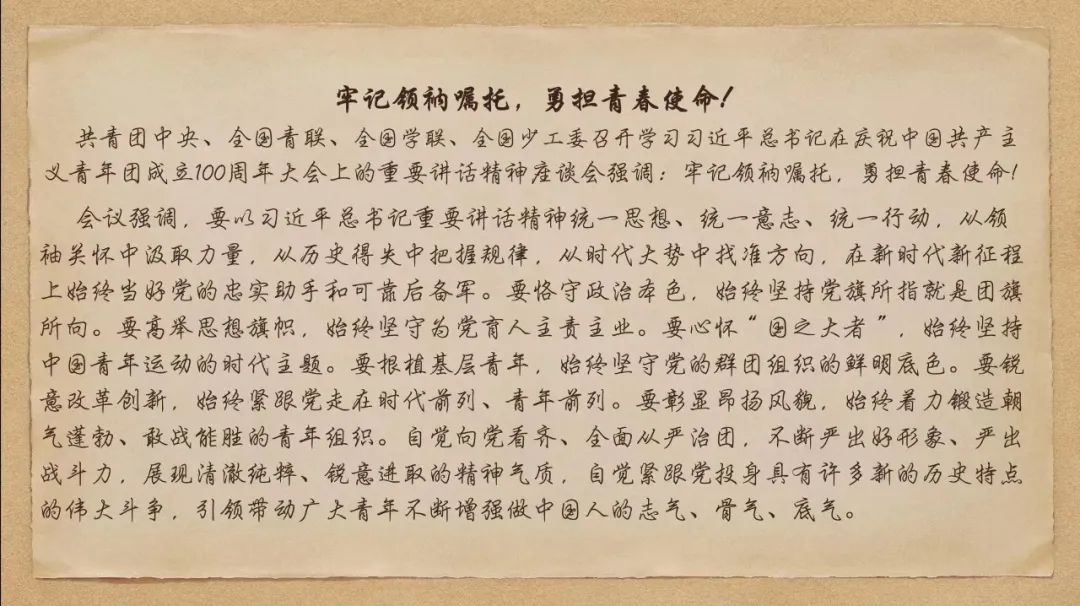 牢记领袖嘱托，勇担青春使命！
共青团中央、全国青联、全国学联、全国少工委召开学习习近平总书记在庆祝中国共产主
义青年团成立100周年大会上的重要讲话精神座谈会强调：牢记领袖嘱托，勇担青春使命！
会议强调，要以习近平总书记重要讲话精神统一思想、统一意志、统一行动，从领
袖关怀中汲取力量，从历史得失中把握规律，从时代大势中找准方向，在新时代新征程
上始终当好党的忠实助手和可靠后备军。要恪守政治本色，始终坚持党旗所指就是团旗
所向。要高举思想旗帜，始终坚守为党育人主责主业。要心怀“国之大者”，始终坚持
中国青年运动的时代主题。要根植基层青年，始终坚守党的群团组织的鲜明底色。要锐
意改革创新，始终紧跟党走在时代前列、青年前列。要彰显昂扬风貌，始终着力锻造朝
气蓬勃、敢战能胜的青年组织。自觉向党看齐、全面从严治团，不断严出好形象、严出
战斗力，展现清澈纯粹、锐意进取的精神气质，自觉紧跟党投身具有许多新的历史特点
的伟大斗争，引领带动广大青年不断增强做中国人的志气、骨气、底气。